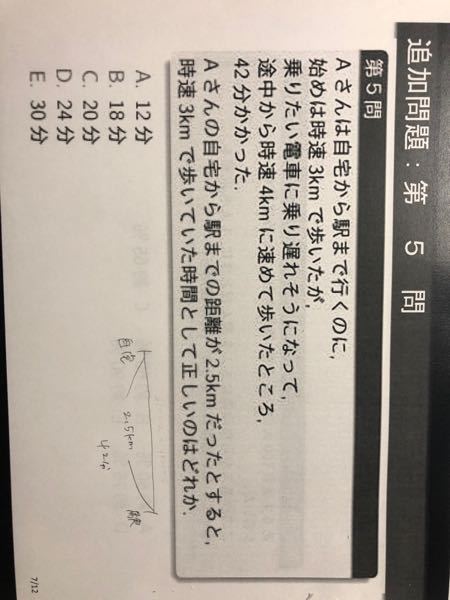 追加問題：第 5 問
第5問
Aさんは自宅から駅まで行くのに,
始めは時速3kmで歩いたが,
乗りたい電車に乗り遅れそうになって,
途中から時速4kmに速めて歩いたところ,
42分かかった.
Aさんの自宅から駅までの距離が2.5kmだったとすると,
時速3kmで歩いていた時間として正しいのはどれか.
A. 12分
B. 18分
C. 20分
D. 24分
E. 30分
自宅
2.5km
42分
駅
7/12